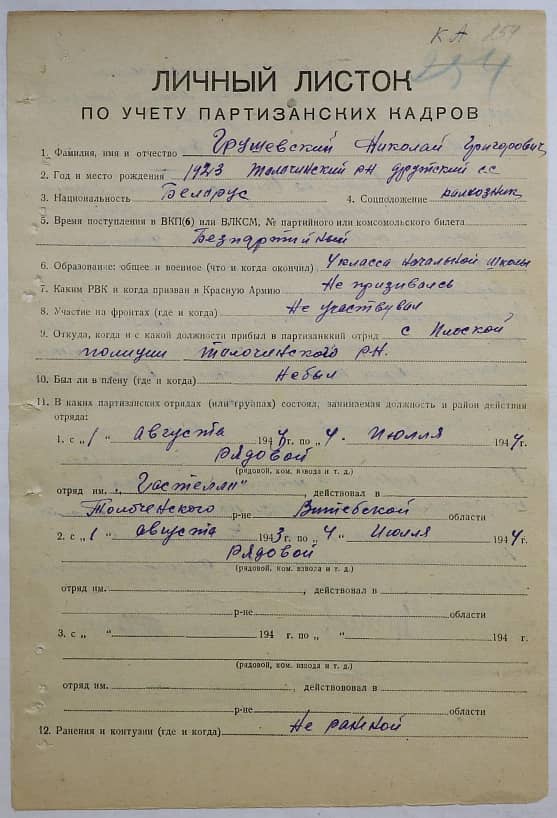 КА 254
254
ЛИЧНЫЙ ЛИСТОК
ПО УЧЕТУ ПАРТИЗАНСКИХ КАДРОВ
1. Фамилия, имя и отчество Грушевский Николай Григорович
2. Год и место рождения 1923 Толочинский рн друтский сс
3. Национальность Беларус 4. Соцположение колхозник
5. Время поступления в ВКП(б) или ВЛКСМ, № партийного или комсомольского билета
Безпартийный
6. Образование: общее и военное (что и когда окончил) 4 класса начальной школы
7. Каким РВК и когда призван в Красную Армию Не призивалсь
8. Участие на фронтах (где и когда) Не участвувал
9. Откуда, когда и с какой должности прибыл в партизанкий отряд с Плоской
полиции Толочинского рн.
10. Был ли в плену (где и когда) не был
11. В каких партизанских отрядах (или группах) состоял, занимаемая должность и район действия
отряда:
1. с „1 “ августа 194 г. по „4. Июлля 1944г.
рядовой
(рядовой, ком. взвода и т. д.)
отряд им. „Гастелли“, действовал в
Толоченского р-не Витебской области
2. с „1 “ августа 1943г. по „4 “ Июлля 1944г.
рядовой
(рядовой, ком. взвода и т. д.)
отряд им. , действовал в
р-не области
3. с „ “ 194 г. по „ “ 194 г.
(рядовой, ком. взвода и т. д.)
отряд им. , действововал в
р-не области
12. Ранения и контузии (где и когда) Не раненой